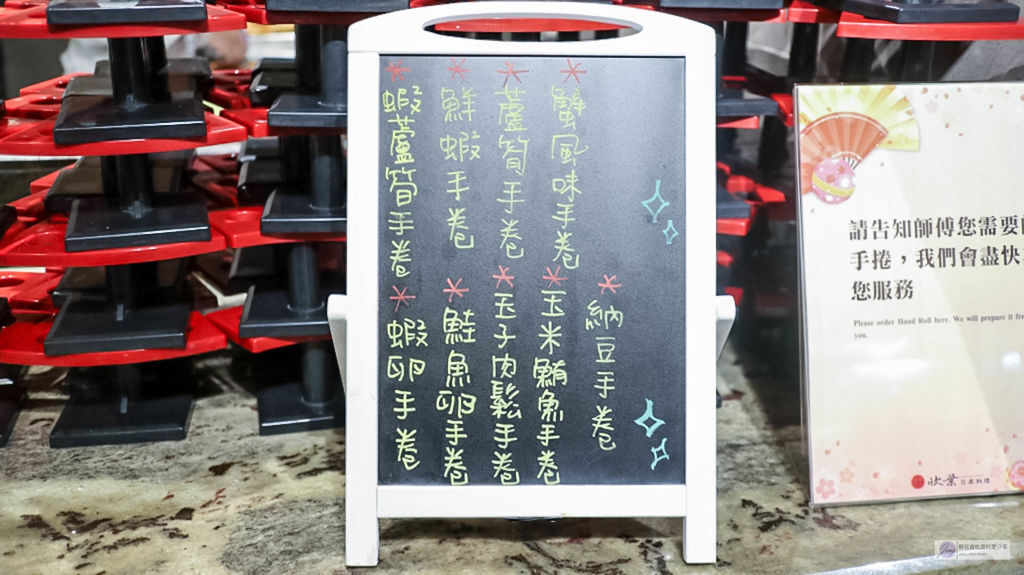 * 蟹風味手卷
* 蘆筍手卷
* 鮮蝦手卷
* 蝦蘆筍手卷
* 納豆手卷
* 玉米鮪魚手卷
* 玉子肉鬆手卷
* 鮭魚卵手卷
* 蝦卵手卷
請告知師傅您需要
手捲，我們會盡快
您服務
Please order Hand Roll here. We will prepare it
you.
欣葉日本料理